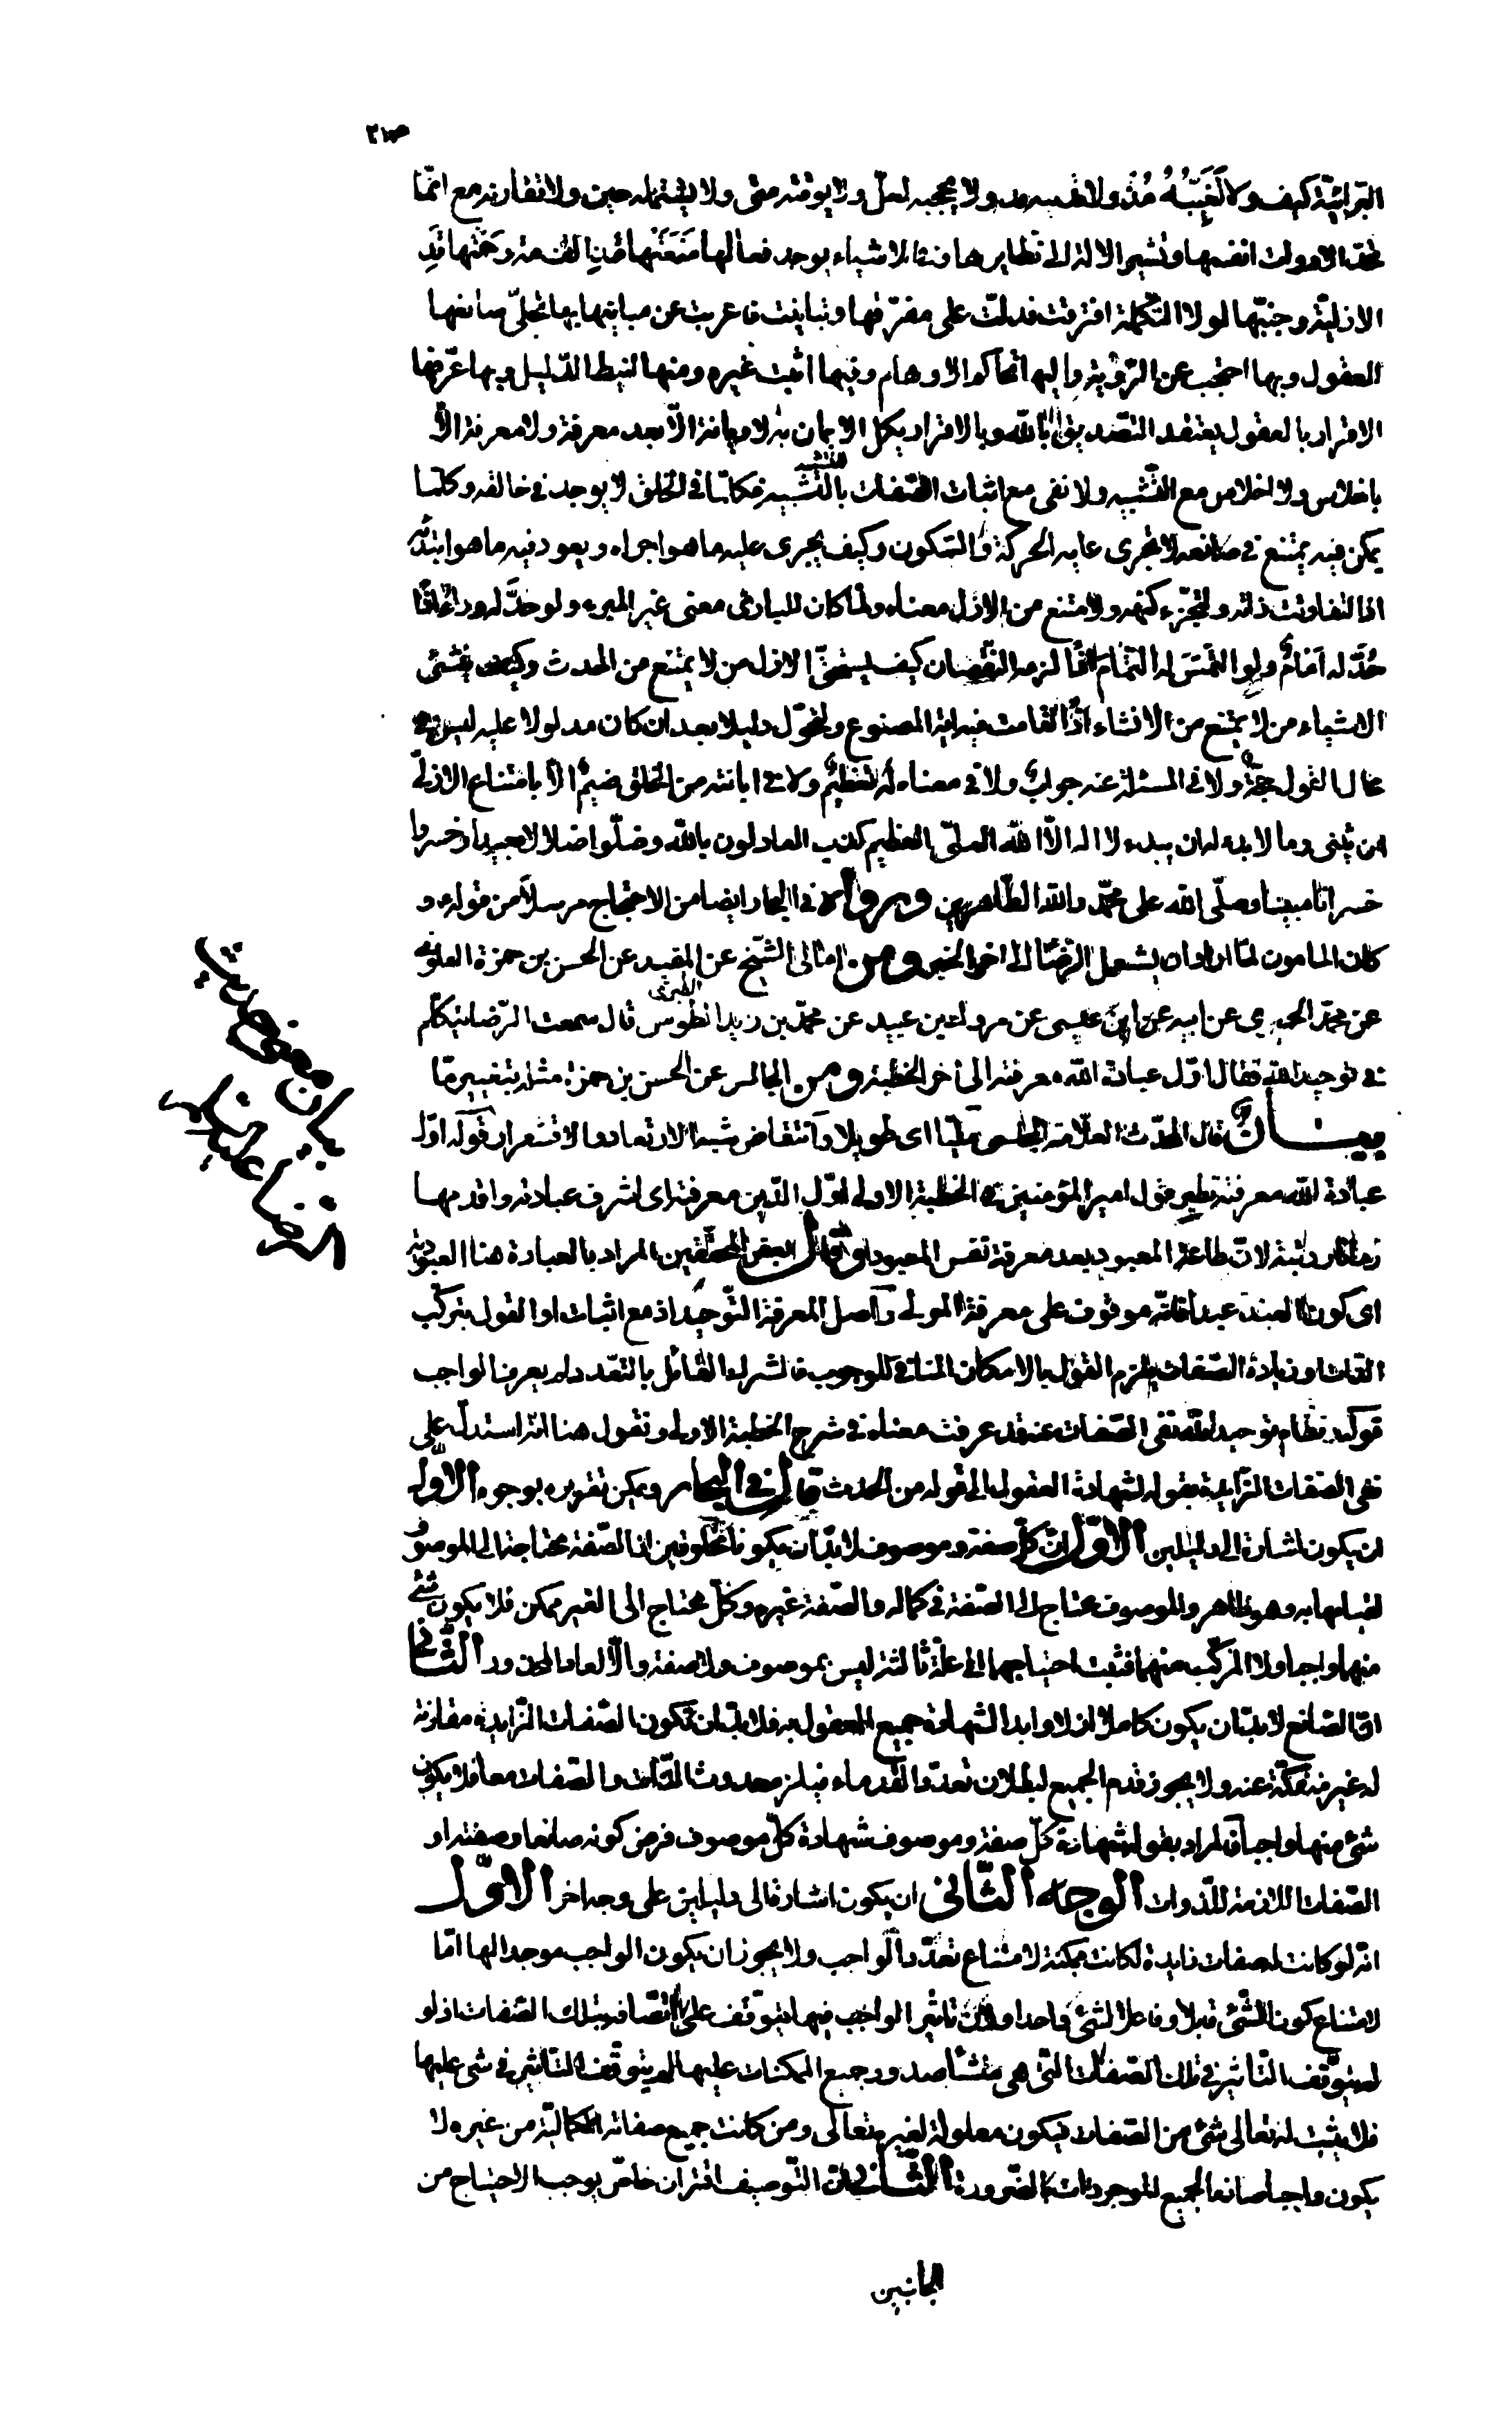 ص٢١
البرائيّة كيف ولا تُغَيِّبُهُ مُذ ولا تدنيه قد ولا يحجبه لعلّ ولا يوقته متى ولا يشتمله حين ولا تقارنه مع انّما
تحدّ الادوات انفسها وتشير الالة الى نظايرها وفى الاشياء يوجد فعالها مَنَعَتْها مُنذ القدمة وحَمَتْها قَدِ
الازليّة وجنبّتها لولا التّكملة افترقت فدلّت على مفرّقها وتباينت فاعربت عن مباينها بها تجلّى صانعها
للعقول وبها احتجب عن الرّؤية واليها تحاكم الاوهام وفيها اثبت غيره ومنها انيط الدّليل وبها عرّفها
الاقرار بالعقول يعتقد التّصديق باللّه وبالاقرار يكمل الايمان به لا ديانة الّا بعد معرفة ولا معرفة الّا
باخلاص ولا اخلاص مع التّشبيه ولا نفى مع اثبات الصّفات بالتّشبيه فكلّما فى الخلق لا يوجد فى خالقه وكلّما
يمكن فيه يمتنع فى صانعه لا تجرى عليه الحركة والسّكون وكيف يجرى عليه ما هو اجراه ويعود فيه ما هو ابتدئه
اذا لتفاوتت ذاته ولتجزّء كنهه ولامتنع من الازل معناه ولما كان للبارئ معنى غير المبرء ولو حدّ له وراء اذًا
حُدَّ له اَمام ولو التُمَسَ له التّمام اذًا لزمه النّقصان كيف يستحقّ الازل من لا يمتنع من الحدث وكيف ينشئ
الاشياء من لا يمتنع من الانشاء اذًا لقامت فيه اية المصنوع ولتحوّل دليلا بعد ان كان مدلولا عليه ليس فى
محال القول حجّة ولا فى المسئلة عنه جواب ولا فى معناه له تعظيم ولا فى ابانته من الخلق ضيم الّا بامتناع الازلىّ
من يثنى وما لا بدء له ان يبدء لا اله الّا اللّه العلىّ العظيم كذب العادلون باللّه وضلّوا ضلالا بعيدا وخسروا
خسرانا مبينا وصلّى اللّه على محمّد واله الطّاهرين ورواه فى البحار ايضا من الاحتجاج مرسلا من قوله و
كان المامون لمّا اراد ان يستعمل الرّضا الى اخر الخبر ومن امالى الشّيخ عن المفيد عن الحسن بن حمزة العلوى
عن محمّد الحميرى عن ابيه عن ابن عيسى عن مروك بن عبيد عن محمّد بن زيد الطبرى قال سمعت الرّضا يتكلّم
فى توحيد اللّه فقال اوّل عبادة اللّه معرفته الى اخر الخطبة ومن المجالس عن الحسن بن حمزة مثله بتغيير مّا
بيـــان قال المحدّث العلّامة المجلسى مليّا اى طويلا وانتفاض شبه الارتعاد والاقشعرار قوله اوّل
عبادة اللّه معرفته نظير قول امير المؤمنين فى الخطبة الاولى اوّل الدّين معرفته اى اشرف عبادته واقدمها
زمانا ورتبة لانّ طاعة المعبود بعد معرفة نفس المعبود وقال بعض المحقّقين المراد بالعبادة هنا العبوديّة
اى كون العبد عبدا فانّه موقوف على معرفة المولى واصل المعرفة التّوحيد اذ مع اثبات او القول بتركّب
الذّات او زيادة الصّفات يلزم القول بالامكان المنافى للوجوب فالشرك القائل بالتعدّد لم يعرف الواجب
قوله ونظام توحيد اللّه نفى الصّفات عنه قد عرفت معناه فى شرح الخطبة الاولى ونقول هنا انّه استدلّ على
نفى الصّفات الزّايدة بقوله لشهادة العقول الى قوله من الحدث قال فى البحار ويمكن تقريره بوجوه الاوّل
ان يكون اشارة الى دليلين الاوّل انّ كلّ صفة وموصوف لا بدّ ان يكونا مخلوقين اذ الصّفة محتاجة الى الموصوف
لقيامها به وهو ظاهر والموصوف محتاج الى الصّفة فى كماله والصّفة غيره وكلّ محتاج الى الغير ممكن فلا يكون شئ
منهما واجبا ولا المركّب منهما فثبت احتياجهما الى علّة ثالثة ليس بموصوف ولا صفة والّا لعاد المحذور الثّانى
انّ الصّانع لا بدّ ان يكون كاملا ازلا وابدا لشهادة جميع العقول به فلا بدّ ان تكون الصّفات الزّايدة مقارنة
له غير منفكّة عنه ولا يجوز قدم الجميع لبطلان تعدّد القدماء فيلزم حدوث الذّات والصّفات معا فلا يكون
شئ منها واجبا فالمراد بقوله شهادة كلّ صفة وموصوف شهادة كلّ موصوف فرض كونه صانعا وصفته او
الصّفات اللازمة للذّوات الوجه الثّانى ان يكون اشارة الى دليلين على وجه اخر الاوّل
انّه لو كانت الصفات زايدة لكانت ممكنة لامتناع تعدّد الواجب ولا يجوز ان يكون الواجب موجدا لها امّا
لامتناع كون الشّئ قابلا وفاعلا لشئ واحد او لانّ تاثير الواجب فيها يتوقّف على اتّصافه بتلك الصّفات اذ لو
لم يتوقّف التّاثير فى تلك الصّفات التّى هى منشأ صدور جميع الممكنات عليها لم يتوقّف التّاثير فى شئ عليها
فلا يثبت له تعالى شئ من الصّفات فيكون معلولة لغيره تعالى ومن كانت جميع صفاته الكماليّة من غيره لا
يكون واجبا صانعا لجميع الموجودات بالضّرورة الثّانى انّ التّوصيف اقتران خاصّ يوجب الاحتياج من
الجانبين
بيان